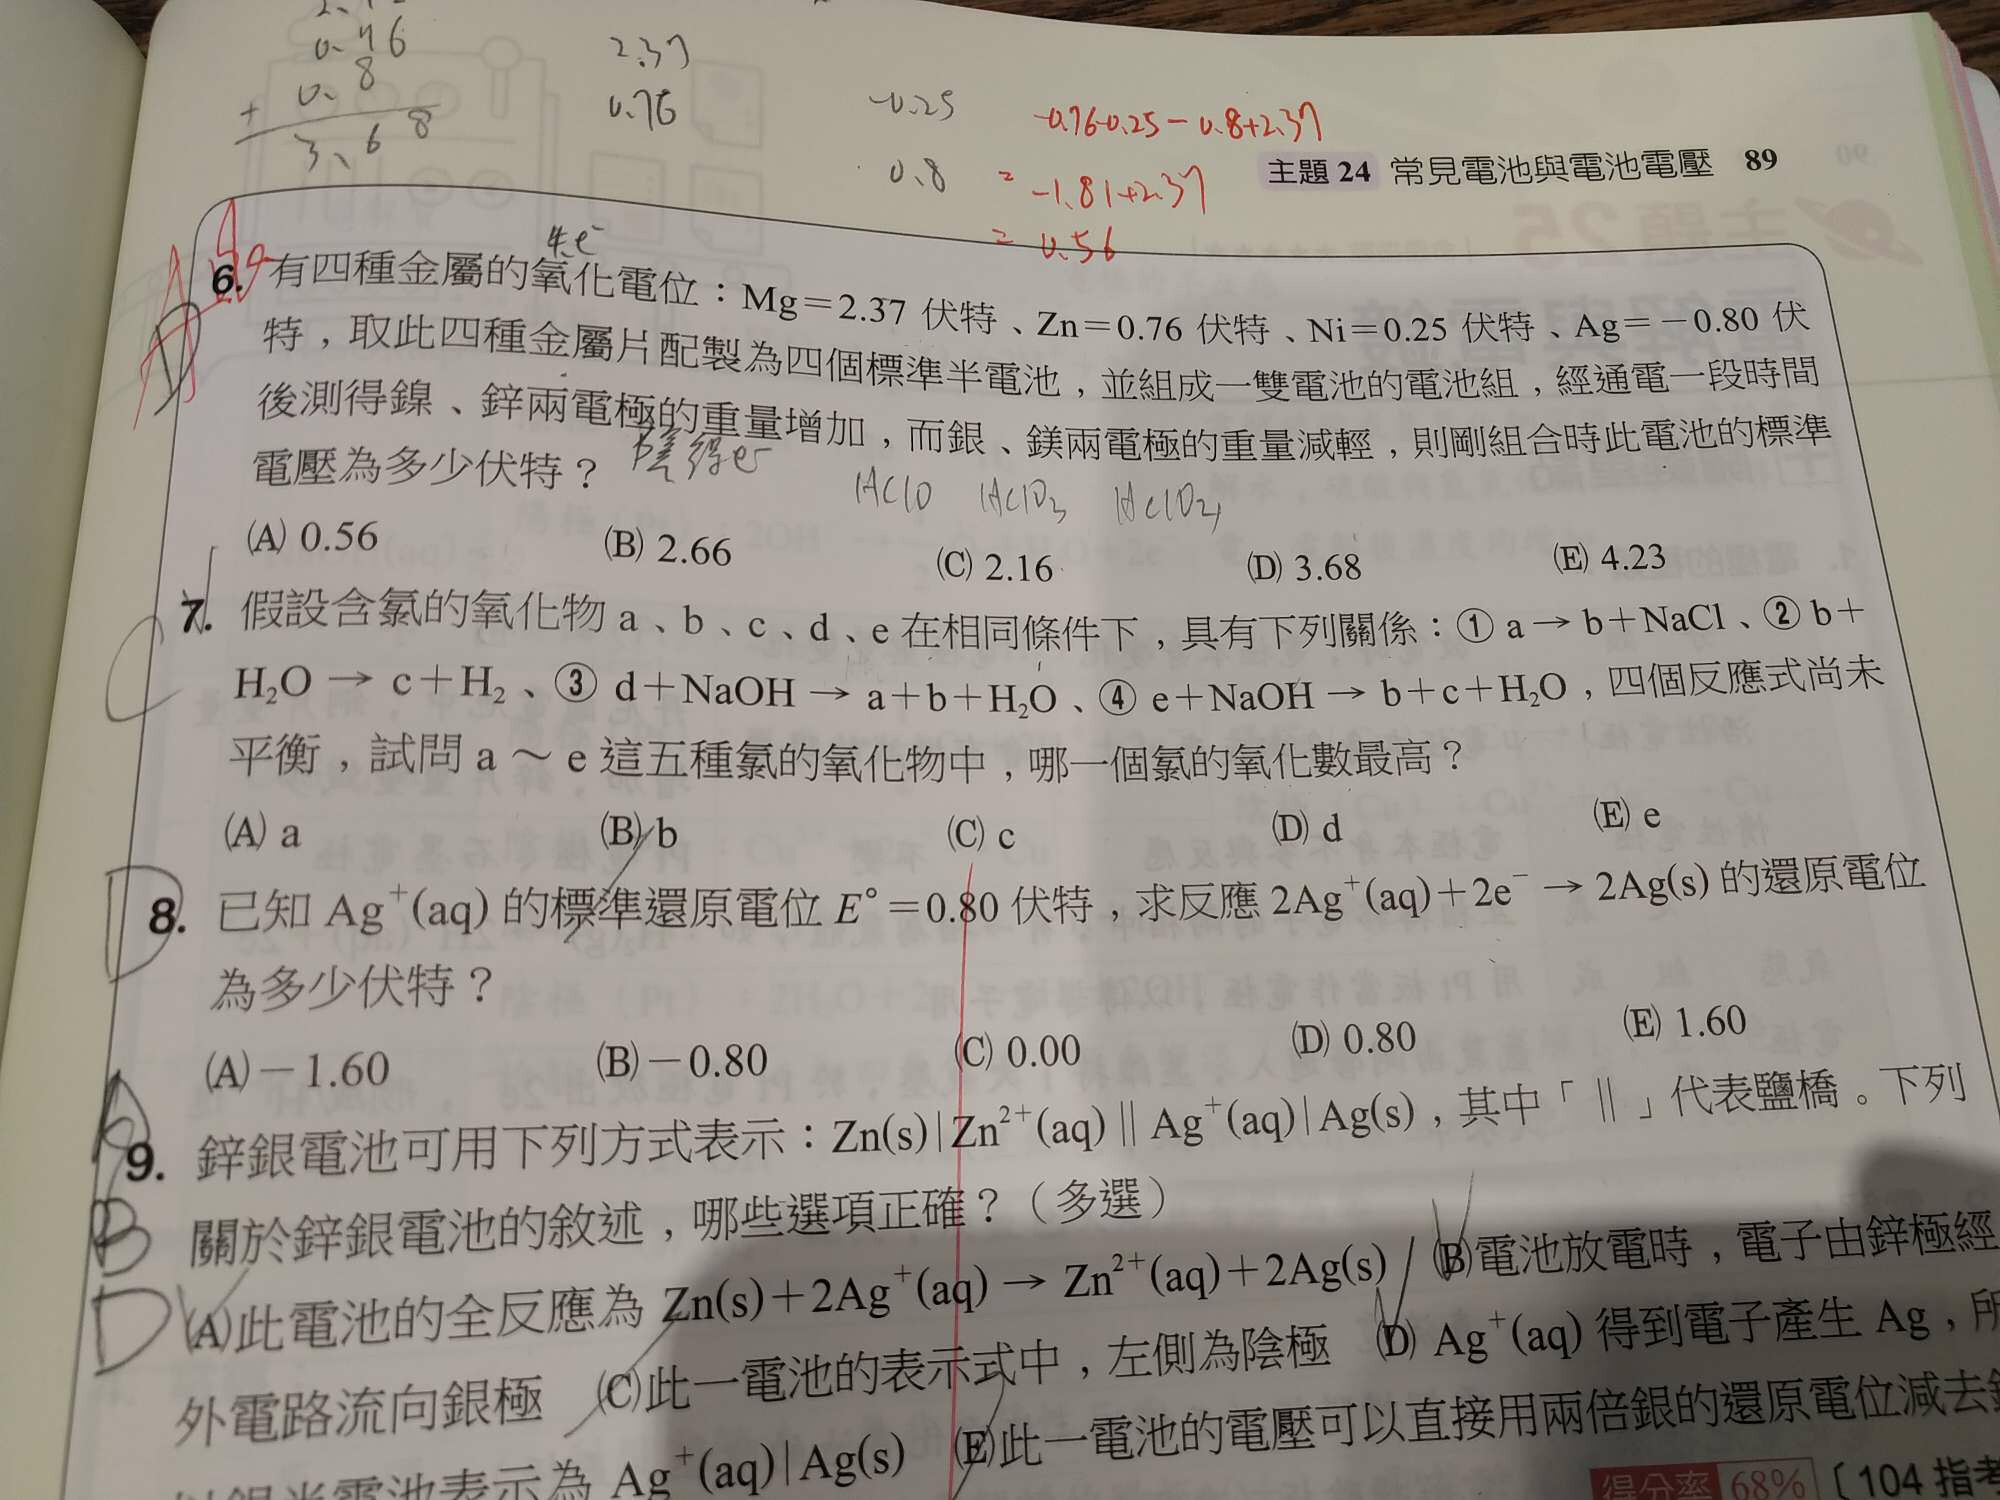 0.76
0.8
+
3.68
2.37
0.76
-0.25
0.8
-0.76-0.25-0.8+2.37
= -1.81+2.37
= 0.56
主題 24 常見電池與電池電壓 89
失e⁻
6. 有四種金屬的氧化電位：Mg＝2.37 伏特、Zn＝0.76 伏特、Ni＝0.25 伏特、Ag＝－0.80 伏
特，取此四種金屬片配製為四個標準半電池，並組成一雙電池的電池組，經通電一段時間
後測得鎳、鋅兩電極的重量增加，而銀、鎂兩電極的重量減輕，則剛組合時此電池的標準
電壓為多少伏特？
陰 得e⁻
HClO HClO₃ HClO₄
(A) 0.56 (B) 2.66 (C) 2.16 (D) 3.68 (E) 4.23
C 7. 假設含氯的氧化物 a、b、c、d、e 在相同條件下，具有下列關係：① a → b＋NaCl、② b＋
H₂O → c＋H₂、③ d＋NaOH → a＋b＋H₂O、④ e＋NaOH → b＋c＋H₂O，四個反應式尚未
平衡，試問 a ～ e 這五種氯的氧化物中，哪一個氯的氧化數最高？
(A) a (B) b (C) c (D) d (E) e
D 8. 已知 Ag⁺(aq) 的標準還原電位 E°＝0.80 伏特，求反應 2Ag⁺(aq)＋2e⁻ → 2Ag(s) 的還原電位
為多少伏特？
(A)－1.60 (B)－0.80 (C) 0.00 (D) 0.80 (E) 1.60
A
9. 鋅銀電池可用下列方式表示：Zn(s)|Zn²⁺(aq)‖Ag⁺(aq)|Ag(s)，其中「‖」代表鹽橋。下列
B 關於鋅銀電池的敘述，哪些選項正確？（多選）
D (A)此電池的全反應為 Zn(s)＋2Ag⁺(aq) → Zn²⁺(aq)＋2Ag(s) (B)電池放電時，電子由鋅極經
外電路流向銀極 (C)此一電池的表示式中，左側為陰極 (D) Ag⁺(aq) 得到電子產生 Ag，所
以銀半電池表示為 Ag⁺(aq)|Ag(s) (E)此一電池的電壓可以直接用兩倍銀的還原電位減去
得分率 68%〔104 指考